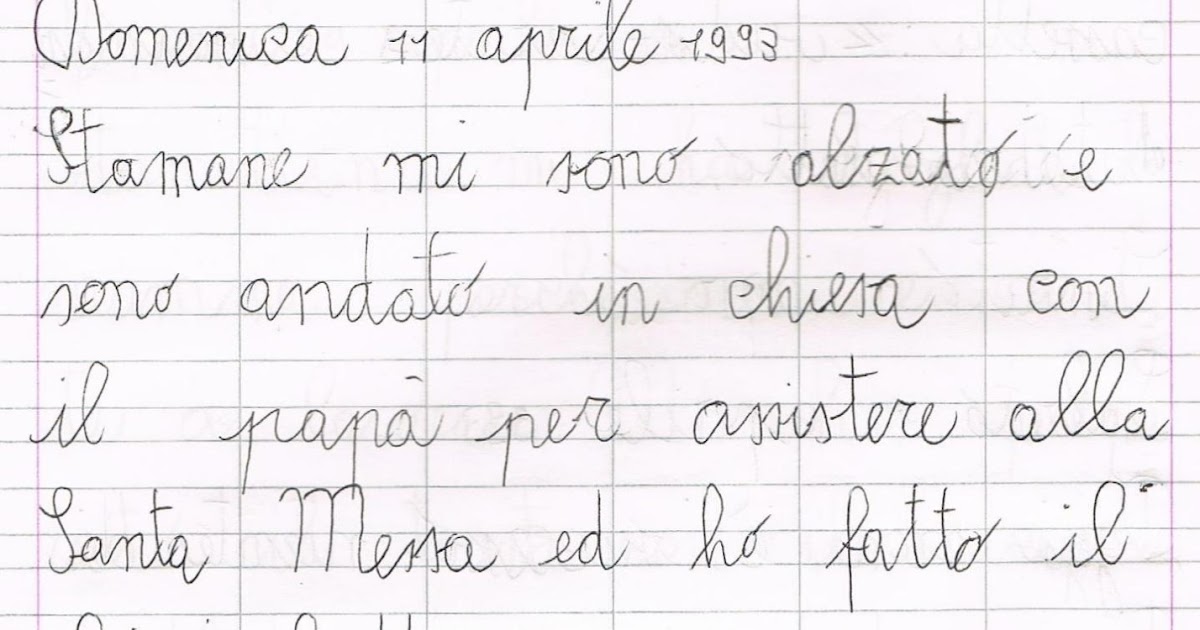 Domenica 11 aprile 1993
Stamane mi sono alzato e
sono andato in chiesa con
il papà per assistere alla
Santa Messa ed ho fatto il